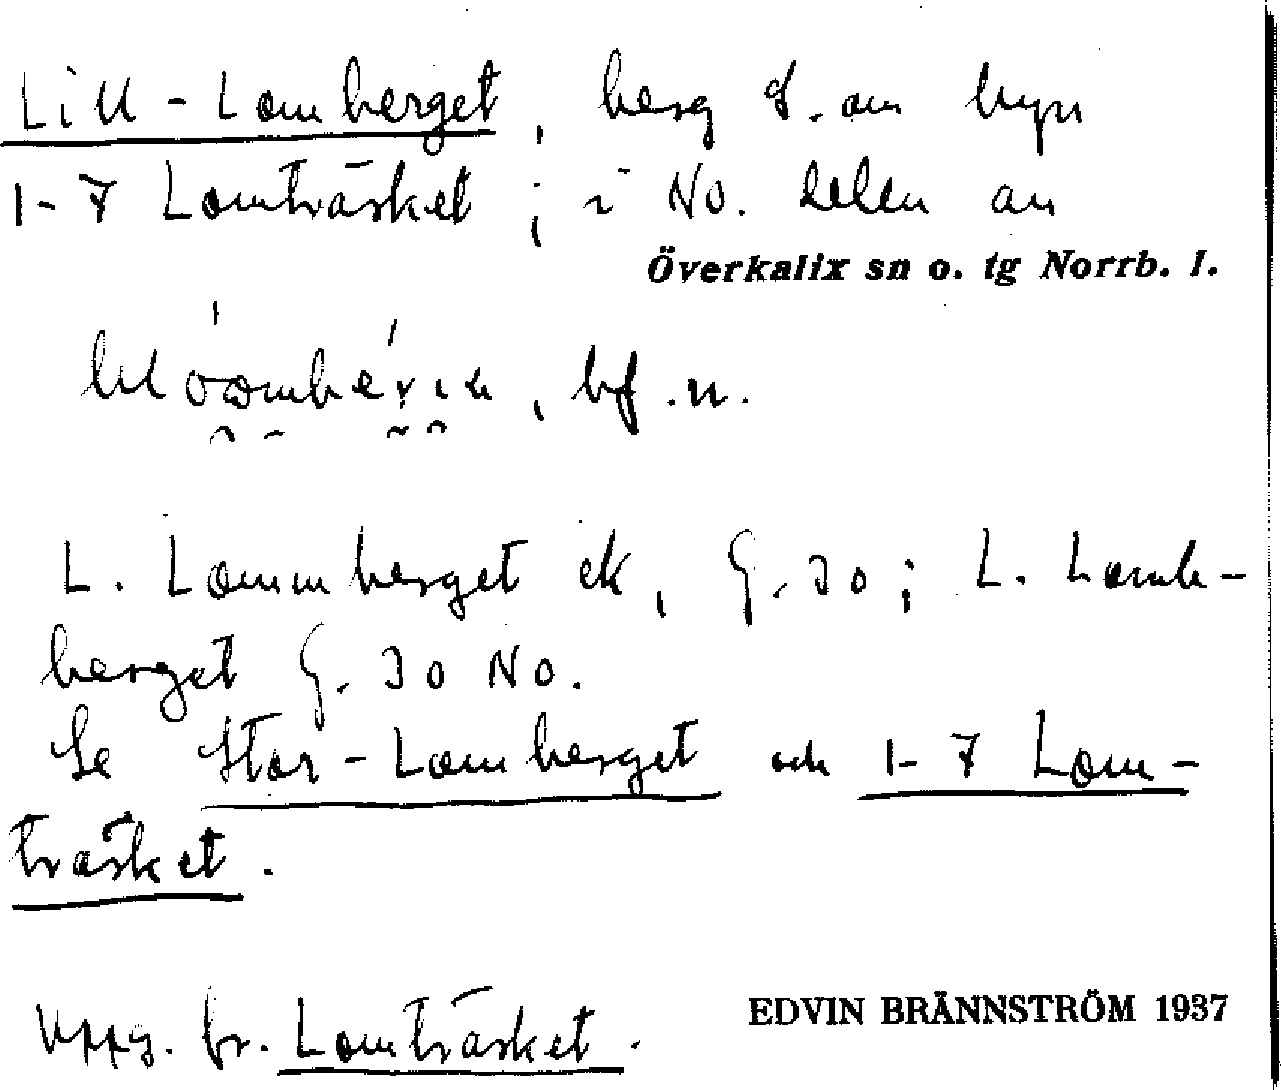 Lill-Lomberget, berg S. om byn
1-7 Lomträsket; i NO. delen av
Överkalix sn o. tg Norrb. l.
bf. n.
L. Lommberget ek, G. 30; L. Lomb-
berget G. 30 NO.
Se Stor-Lomberget och 1-7 Lom-
träsket.
Uppg. fr. Lomträsket.
EDVIN BRÄNNSTRÖM 1937